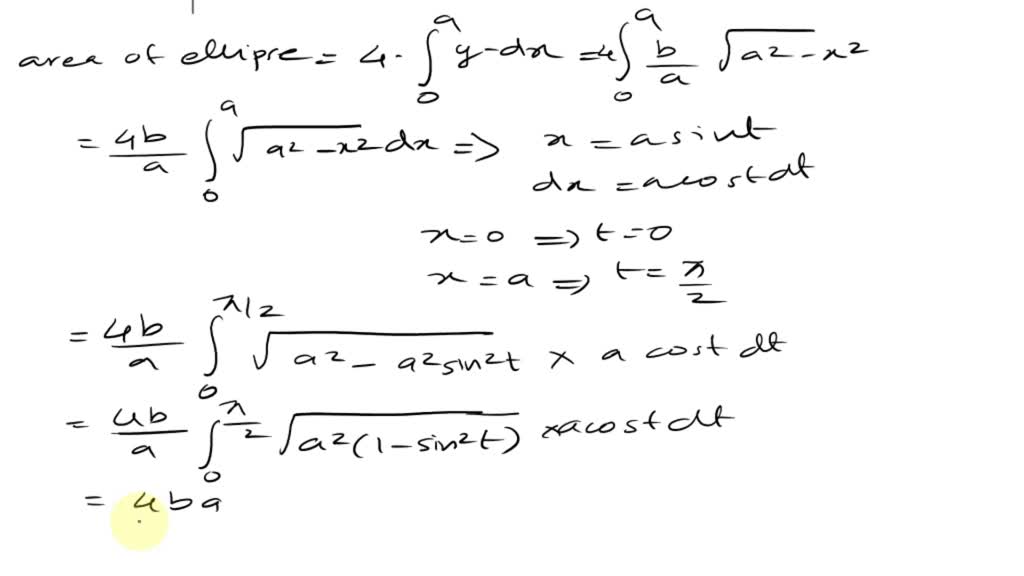 area of ellipse = 4 · ∫₀ᵃ y-dx = 4∫₀ᵃ b/a √(a²-x²)
= 4b/a ∫₀ᵃ √(a²-x²) dx => x = a sint
dx = a cost dt
x=0 => t=0
x=a => t=π/2
= 4b/a ∫₀^(π/2) √(a² - a²sin²t) × a cost dt
= 4b/a ∫₀^(π/2) √(a²(1-sin²t)) × a cost dt
= 4ba